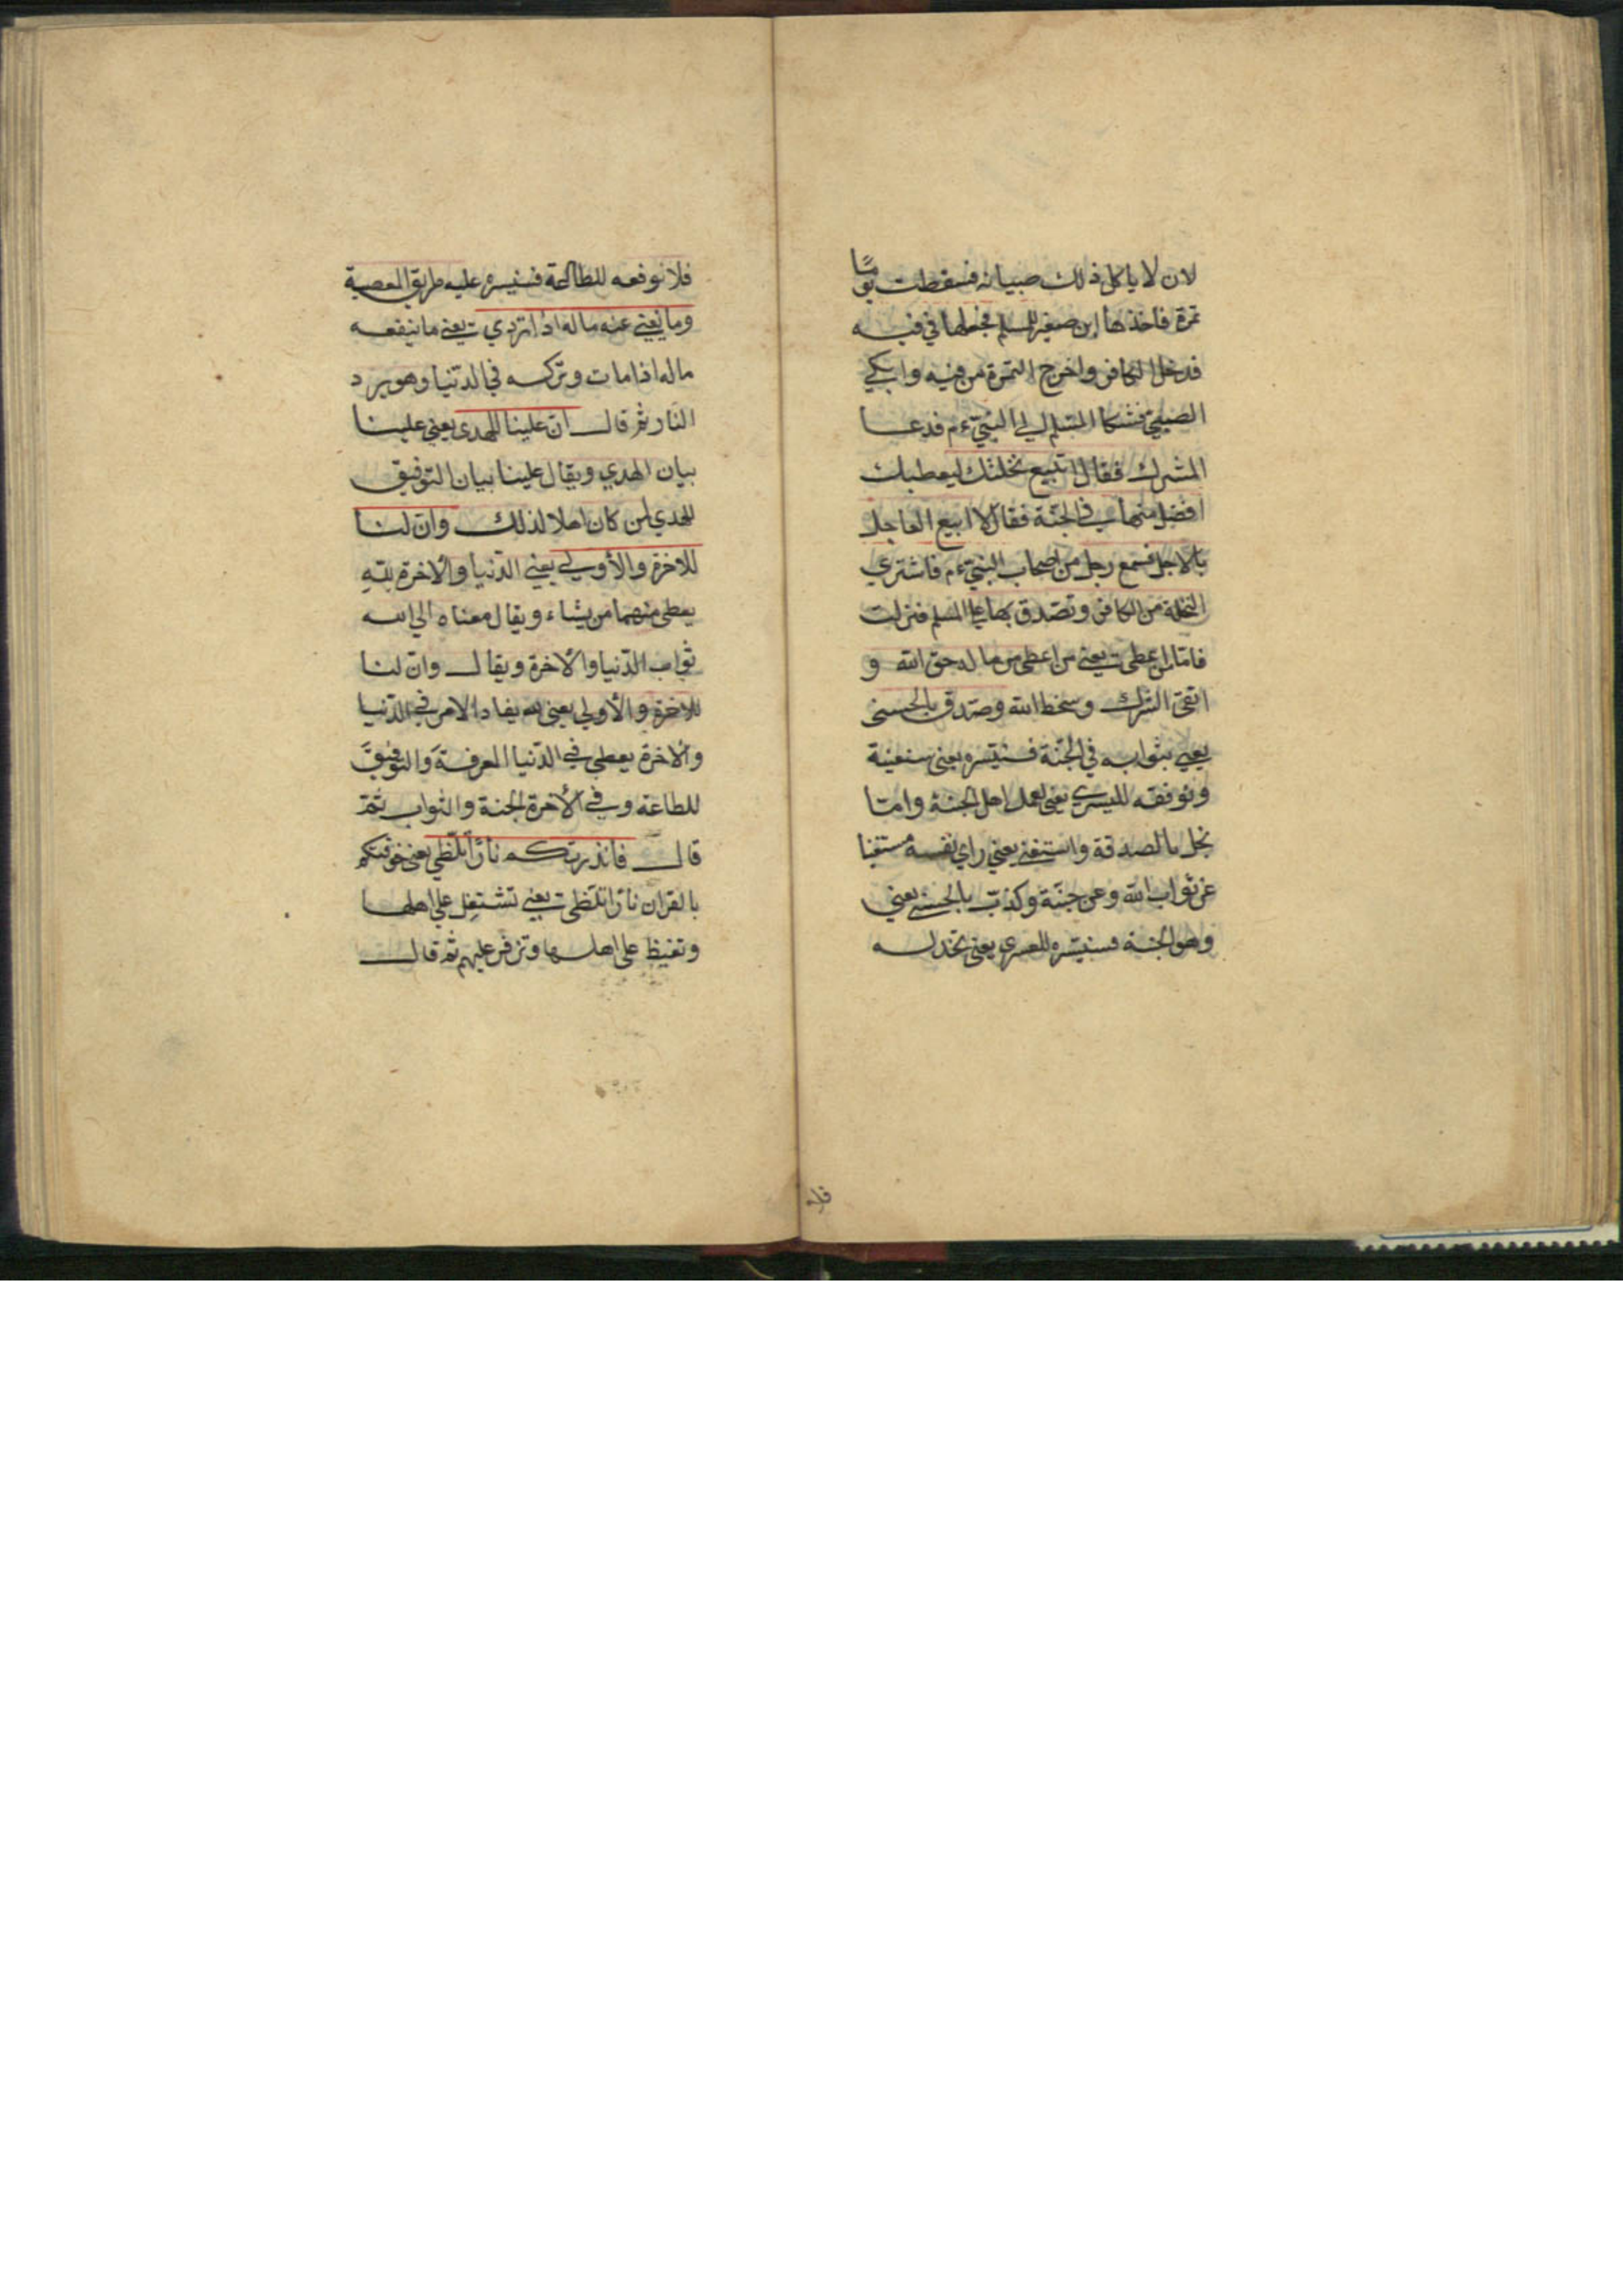 لان لا ياكل ذلك صبيانه فسقطت يومًا
تمرة فاخذها ابن صغير للمسلم فجعلها في فيه
فدخل الكافر واخرج التمرة من فيه وابكي
الصبي فشكا المسلم الي النبي ءم فدعا
المشرك فقال اتبيع نخلتك ليعطيك
افضل منها في الجنّة فقال لا ابيع العاجل
بالاجل فسمع رجل من اصحاب النبي ءم فاشتري
النخلة من الكافر وتصدق بها علي المسلم فنزلت
فامّا من اعطي يعني من اعطي من ماله حق الله و
اتقي الشرك وسخط الله وصدّق بالحسني
يعني بثوابه في الجنّة فسنيسره يعني سنعينه
ونوفقه لليسري يعني لعمل اهل الجنة وامّا
بخل بالصدقة واستغني يعني راي نفسه مستغنيا
عن ثواب الله وعن جنّته وكذّب بالحسني يعني
وهو الجنة فسنيسّره للعسري يعني نخذله
فلا نوفقه للطاعة فسنيسره عليه طريق المعصية
وما يغني عنه ماله اذا تردي يعني ما ينفعه
ماله اذا مات وتركه في الدّنيا وهو يرد
النّار ثم قال انّ علينا للهدي يعني علينا
بيان الهدي ويقال علينا بيان التوفيق
للهدي لمن كان اهلا لذلك وانّ لنا
للاخرة والأولي يعني الدّنيا والاخرة بيّه
يعطي منهما من يشاء ويقال معناه الي الله
ثواب الدّنيا والاخرة ويقال وانّ لنا
للاخرة والأولي يعني لله نفاد الامر في الدّنيا
والاخرة يعطي في الدّنيا المعرفة والتوفيق
للطاعة وفي الأخرة الجنة والثواب ثمّ
قال فانذرتكم نارًا تلظّي يعني خوفتكم
بالقران نارًا تلظّي يعني تشتعل علي اهلها
وتغيظ علي اهلها وتزفر عليهم ثم قال
فلا